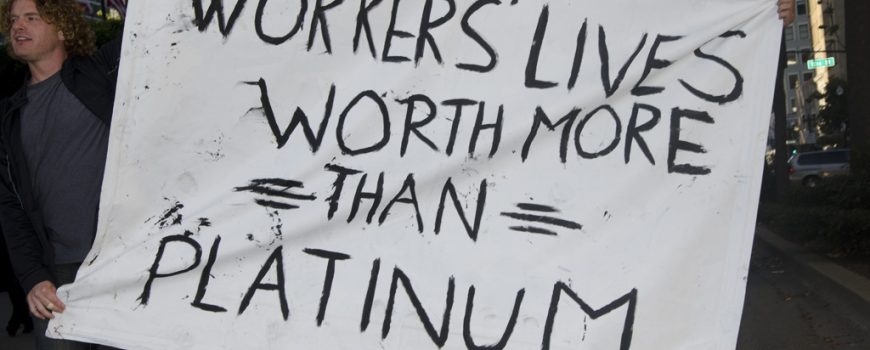 WORKERS' LIVES
WORTH MORE
= THAN =
PLATINUM